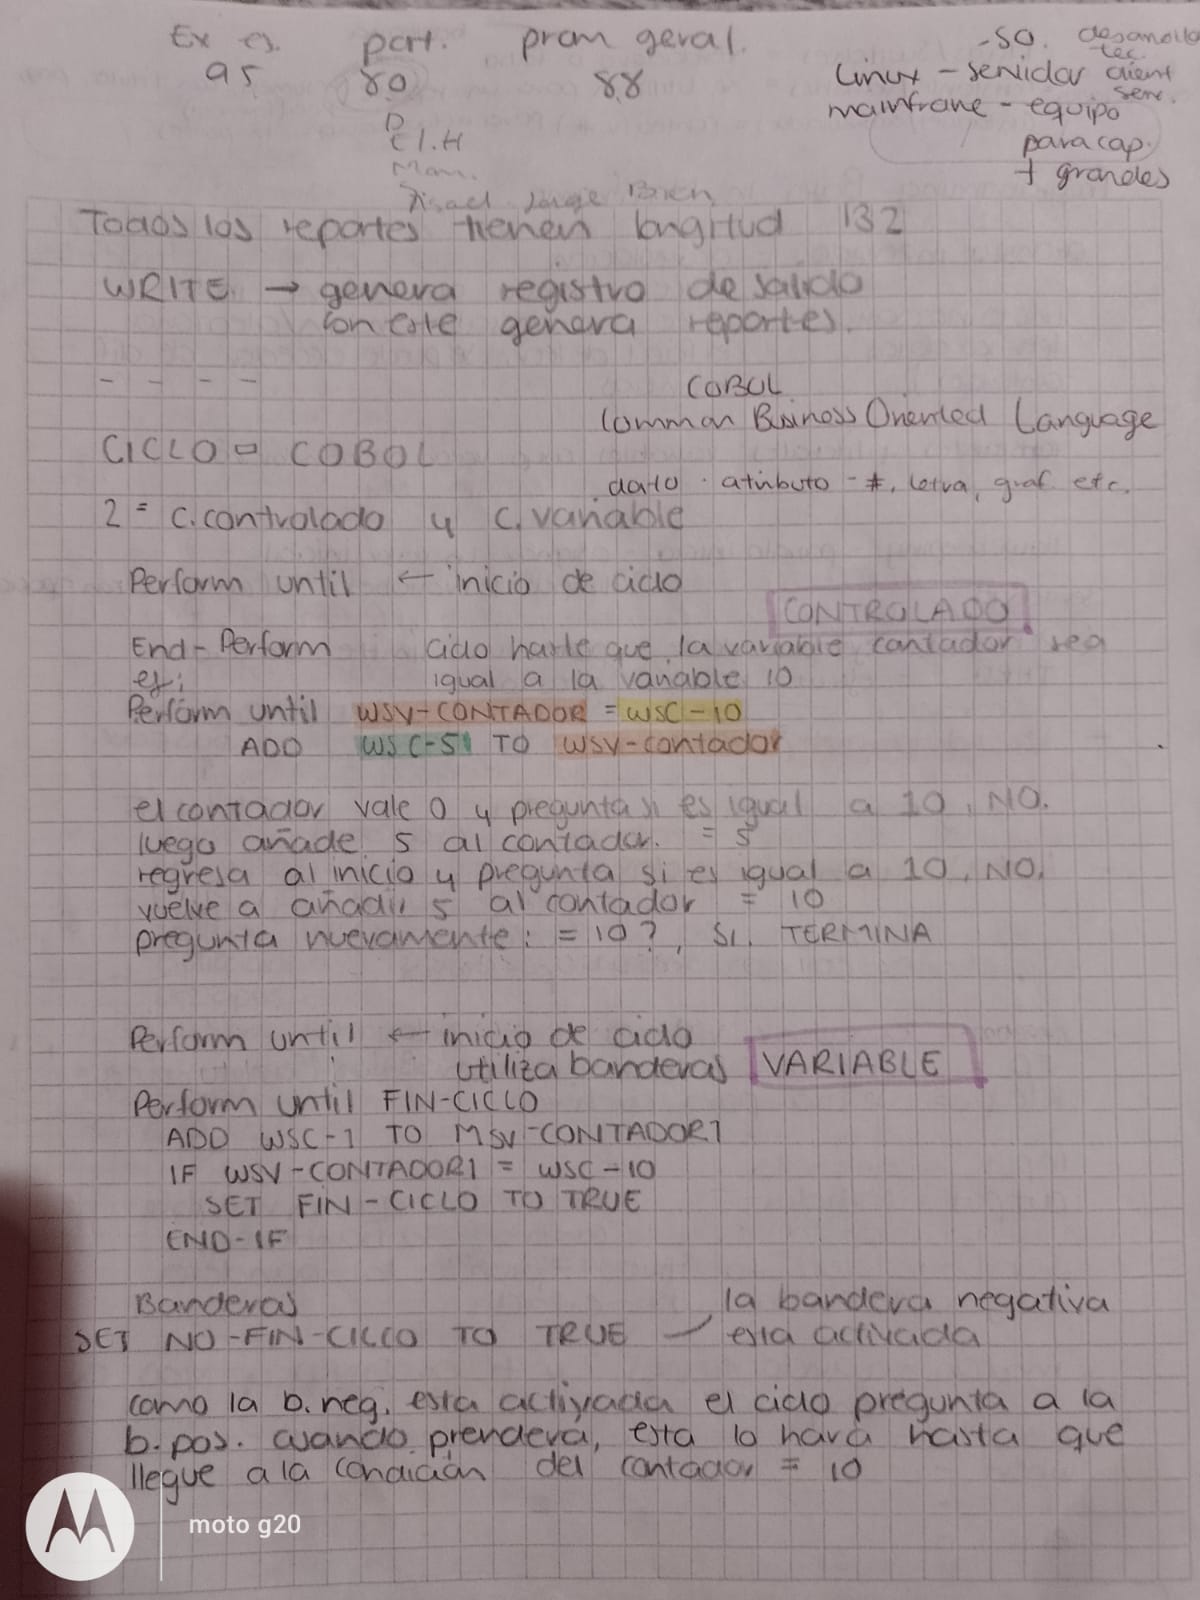 Ex es. part. prom geral.
95 80 88
-SO. desarrollo
tec.
Linux - servidor client
serv.
mainframe - equipo
para cap.
+ grandes
P
E I.H
Man.
Jorge Bien
Todos los reportes tienen longitud 132
WRITE. → genera registro de salida
con este genera reportes.
- - - -
COBOL
Common Business Oriented Language
CICLO = COBOL
.dato · atributo - #, letra, graf etc.
2 = C. controlado y C. variable
Perform until ← inicio de ciclo
CONTROLADO
End - Perform ciclo hasta que la variable contador sea
igual a la variable 10
ej:
Perform until WSV-CONTADOR = WSC-10
ADD WSC-5 TO WSV-contador
el contador vale 0 y pregunta si es igual a 10, NO.
luego añade 5 al contador. = 5
regresa al inicio y pregunta si es igual a 10, NO.
vuelve a añadir 5 al contador = 10
pregunta nuevamente: = 10?, SI. TERMINA
Perform until ← inicio de ciclo
utiliza banderas VARIABLE
Perform until FIN-CICLO
ADD WSC-1 TO MSV-CONTADOR1
IF WSV-CONTADOR1 = WSC-10
SET FIN-CICLO TO TRUE
END-IF
Banderas la bandera negativa
SET NO-FIN-CICLO TO TRUE — esta activada
como la b. neg. esta activada el ciclo pregunta a la
b. pos. cuando prendera, esta lo hara hasta que
llegue a la condición del contador = 10
moto g20